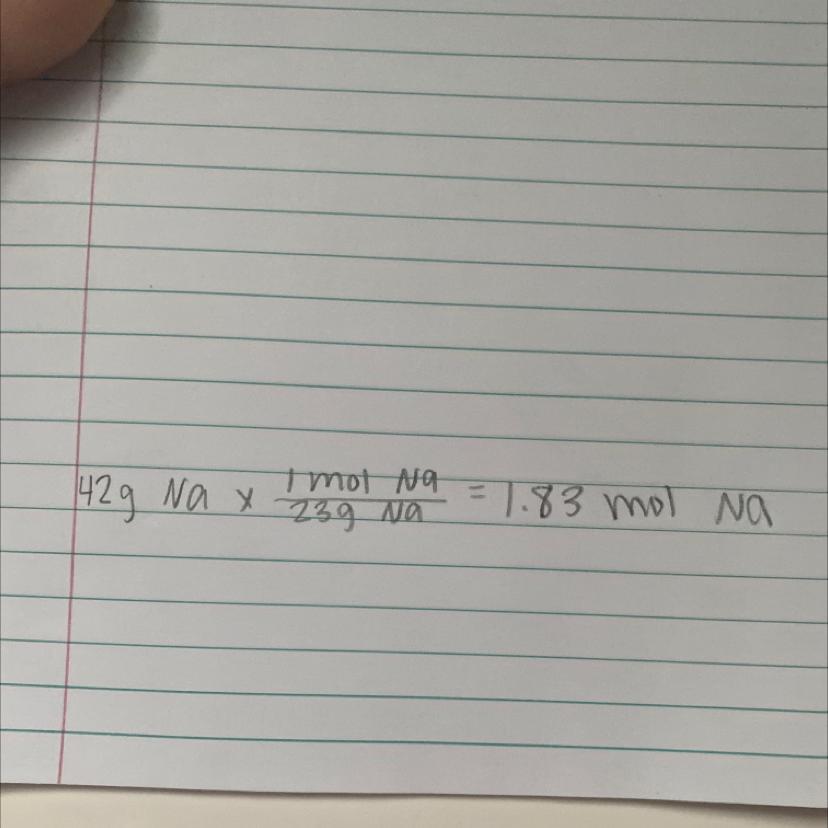 42g Na x 1 mol Na / 23g Na = 1.83 mol Na